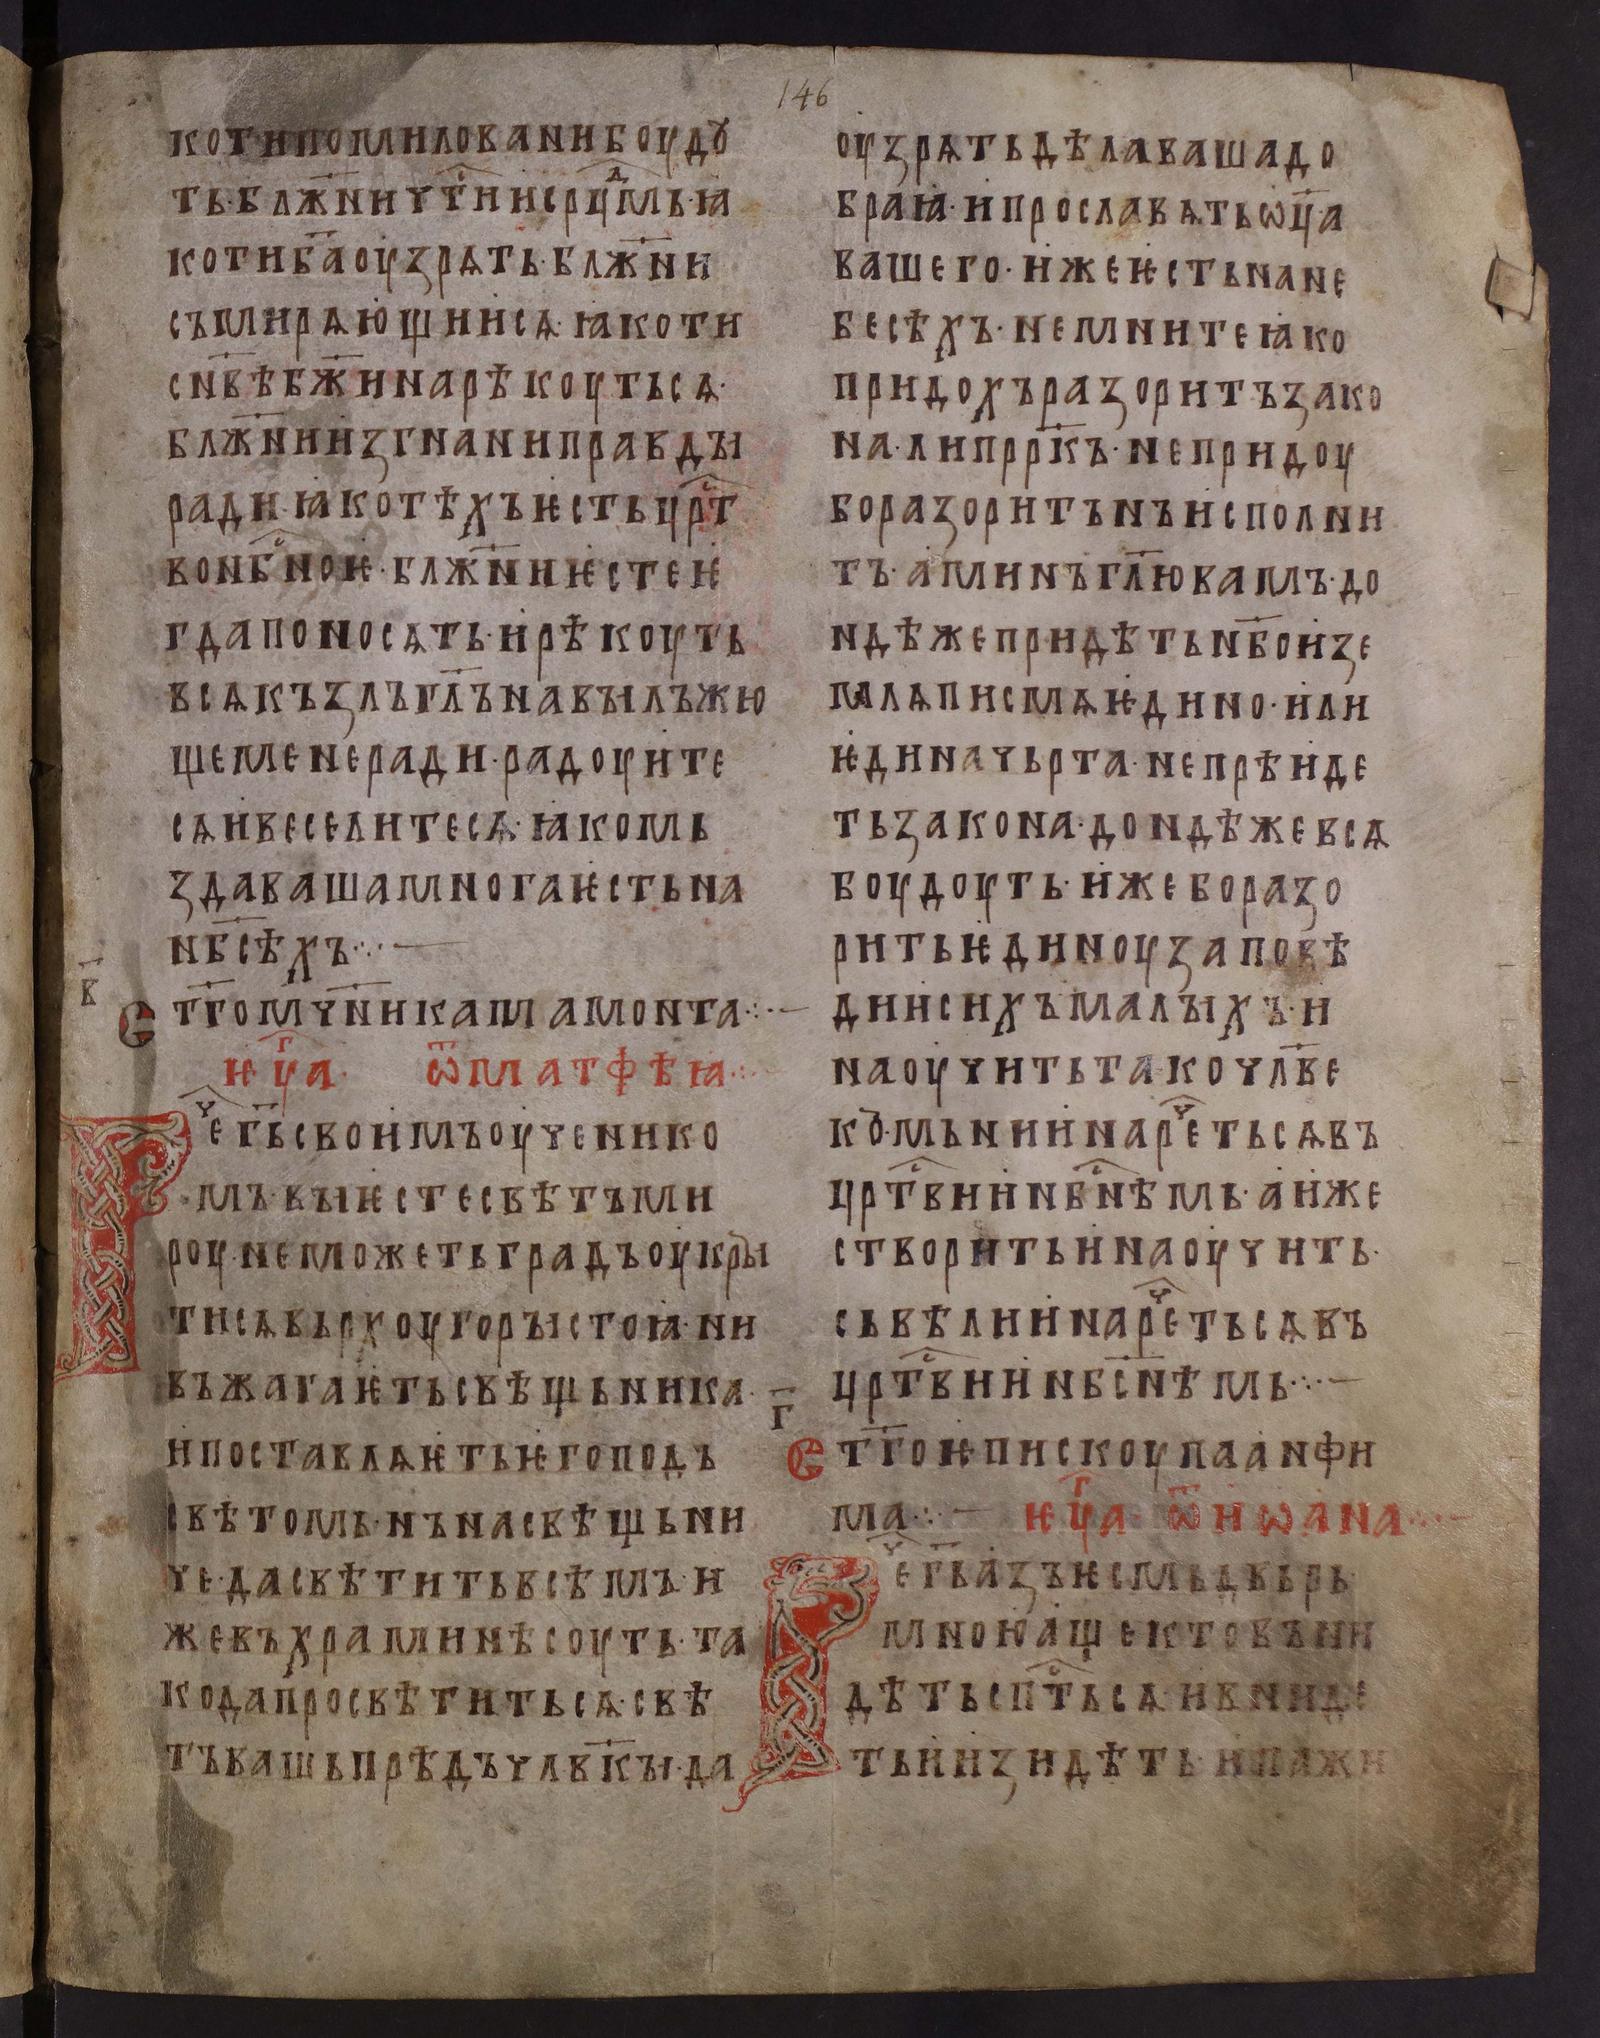 146
коти помиловани боудꙋ
ть· блж҃ни чⷭ҇тии срⷣцмь· ꙗ
ко ти б҃а оузрѧть· блж҃ни
съмирѧющиисѧ· ꙗко ти
сн҃ве бж҃ии нарѣкоутьсѧ·
блж҃ни изгнани правды
ради· ꙗко тѣхъ ѥсть црⷭ҇т
во нбⷭ҇ноѥ· блж҃ни ѥсте ѥ
гда поносѧть· и рѣкоуть
всѧкъ зълъ гл҃ъ на вы лъжю
ще мене ради· радоуите
сѧ и веселитесѧ· ꙗко мь
зда ваша многа ѥсть на
нб҃сѣхъ·:·—
в҃
Ст҃го мч҃нника мамонта·:·—
ѥⷢ҇ца· ѿ матфѣꙗ·:·
Рⷱ҇е г҃ь своимъ оученико
мъ· вы ѥсте свѣтъ ми
роу· не можеть градъ оукры
тисѧ вьрхоу горы стоꙗ· ни
въжагаѥть свѣщьника·
и поставлѧѥть ѥго подъ
свѣтомь· нъ на свѣщьни
че· да свѣтить всѣмъ· и
же въ храминѣ соуть· та
ко да просвѣтитьсѧ· свѣ
тъ вашь прѣдъ члв҃кы· да
оузрѧть дѣла ваша до
браꙗ· и прославѧть ѡц҃а
вашего· иже ѥсть на не
бесѣхъ· не мните ꙗко
придохъ разоритъ зако
на· ли прр҃къ· не придоу
бо разоритъ нъ исполни
тъ· аминъ гл҃ю вамъ· до
ндѣже придѣть нб҃о и зе
млѧ писмѧ ѥдино· или
ѥдина чьрта· не прѣиде
ть закона· дондѣже всѧ
боудоуть· иже бо разо
рить ѥдиноу заповѣ
дии сихъ малыхъ· и
наоучить тако члв҃е
кꙑ· мьнии нарⷱ҇етьсѧ въ
црⷭ҇твии нбⷭ҇нѣмь· а иже
створить и наоучить·
сь вѣлии нарⷱ҇етьсѧ въ
црⷭ҇твии нбс҃нѣмь·:·—
г҃
Ст҃го ѥпискоупа анфи
ма·:·— ѥⷢ҇ца· ѿ иѡана·:·—
Рⷱ҇е г҃ь азъ ѥсмь двьрь
мною аще кто въни
дѣть сп҃ⷭтьсѧ· и вниде
ть и изидѣть· и пажи